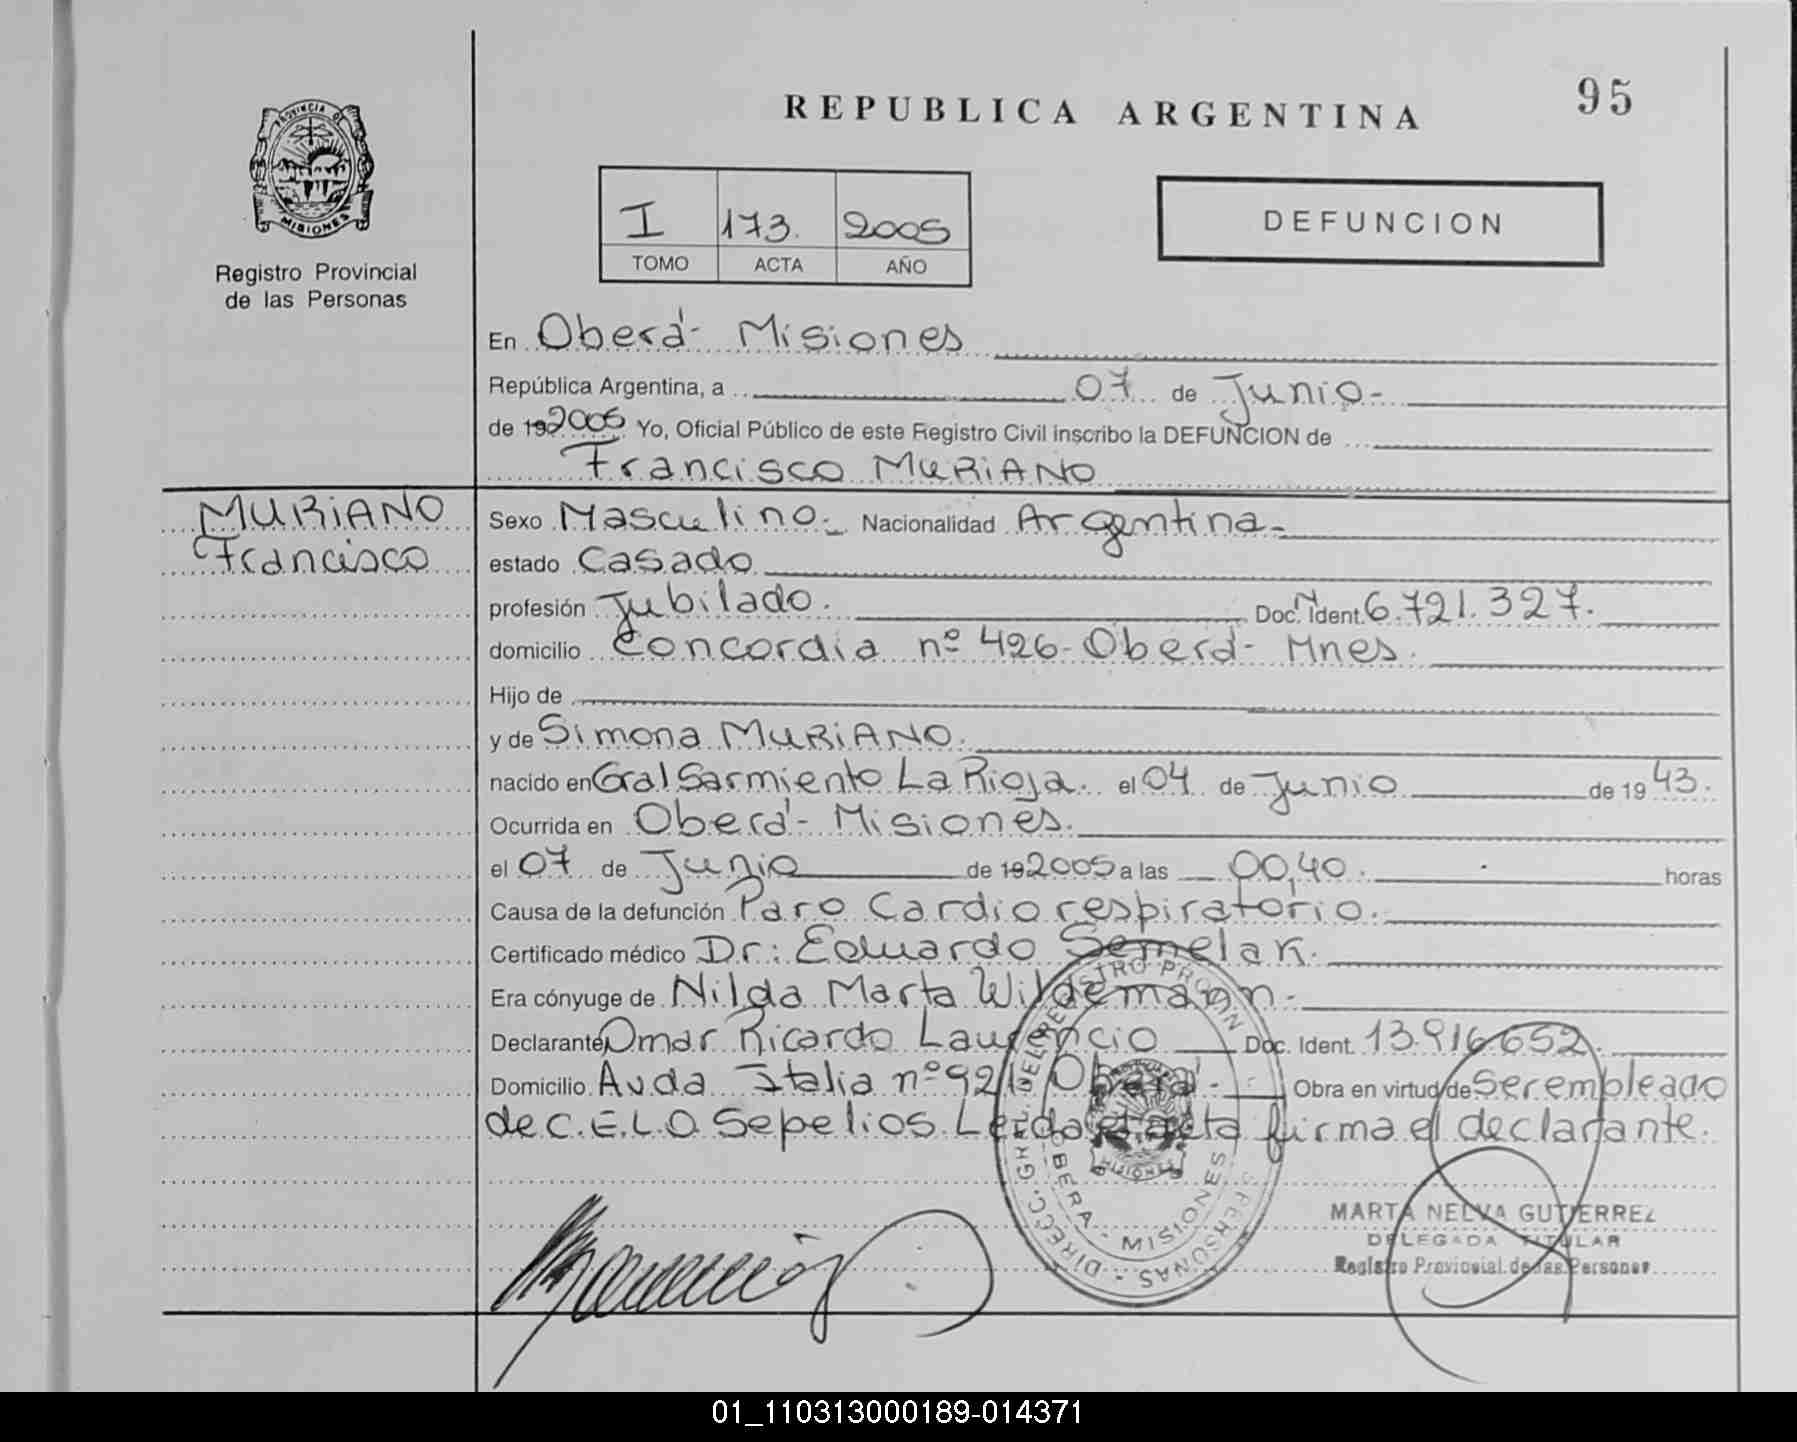 95
REPUBLICA ARGENTINA
PROVINCIA DE
MISIONES
Registro Provincial
de las Personas
I 173. 2005
TOMO ACTA AÑO
DEFUNCION
En Oberá- Misiones
República Argentina, a 07 de Junio-
de 192005 Yo, Oficial Público de este Registro Civil inscribo la DEFUNCION de
Francisco MURiANO
MURiANO
Francisco
Sexo Masculino- Nacionalidad Argentina-
estado Casado
profesión Jubilado. Doc. N Ident. 6.721.327.
domicilio Concordia nº 426- Oberá- Mnes.
Hijo de
y de Simona MURiANO.
nacido en Gral Sarmiento La Rioja. el 04 de Junio de 19 43.
Ocurrida en Oberá- Misiones.
el 07 de Junio de 192005 a las 00,40. horas
Causa de la defunción Paro Cardiorespiratorio.
Certificado médico Dr: Eduardo Semelak.
Era cónyuge de Nilda Marta Wildemann-
Declarante Omar Ricardo Laurencio Doc. Ident. 13.916.652.
Domicilio Avda Italia nº 921 Oberá- Obra en virtud de Ser empleado
de C.E.L.O Sepelios. Leida el acta firma el declarante.
DIRECC. GRAL. DEL REGISTRO PROVIN PERSONAS
OBERA - MISIONES
MISIONES
MARTA NELVA GUTIERREZ
DELEGADA TITULAR
Registro Provincial de las Personas
01_110313000189-014371